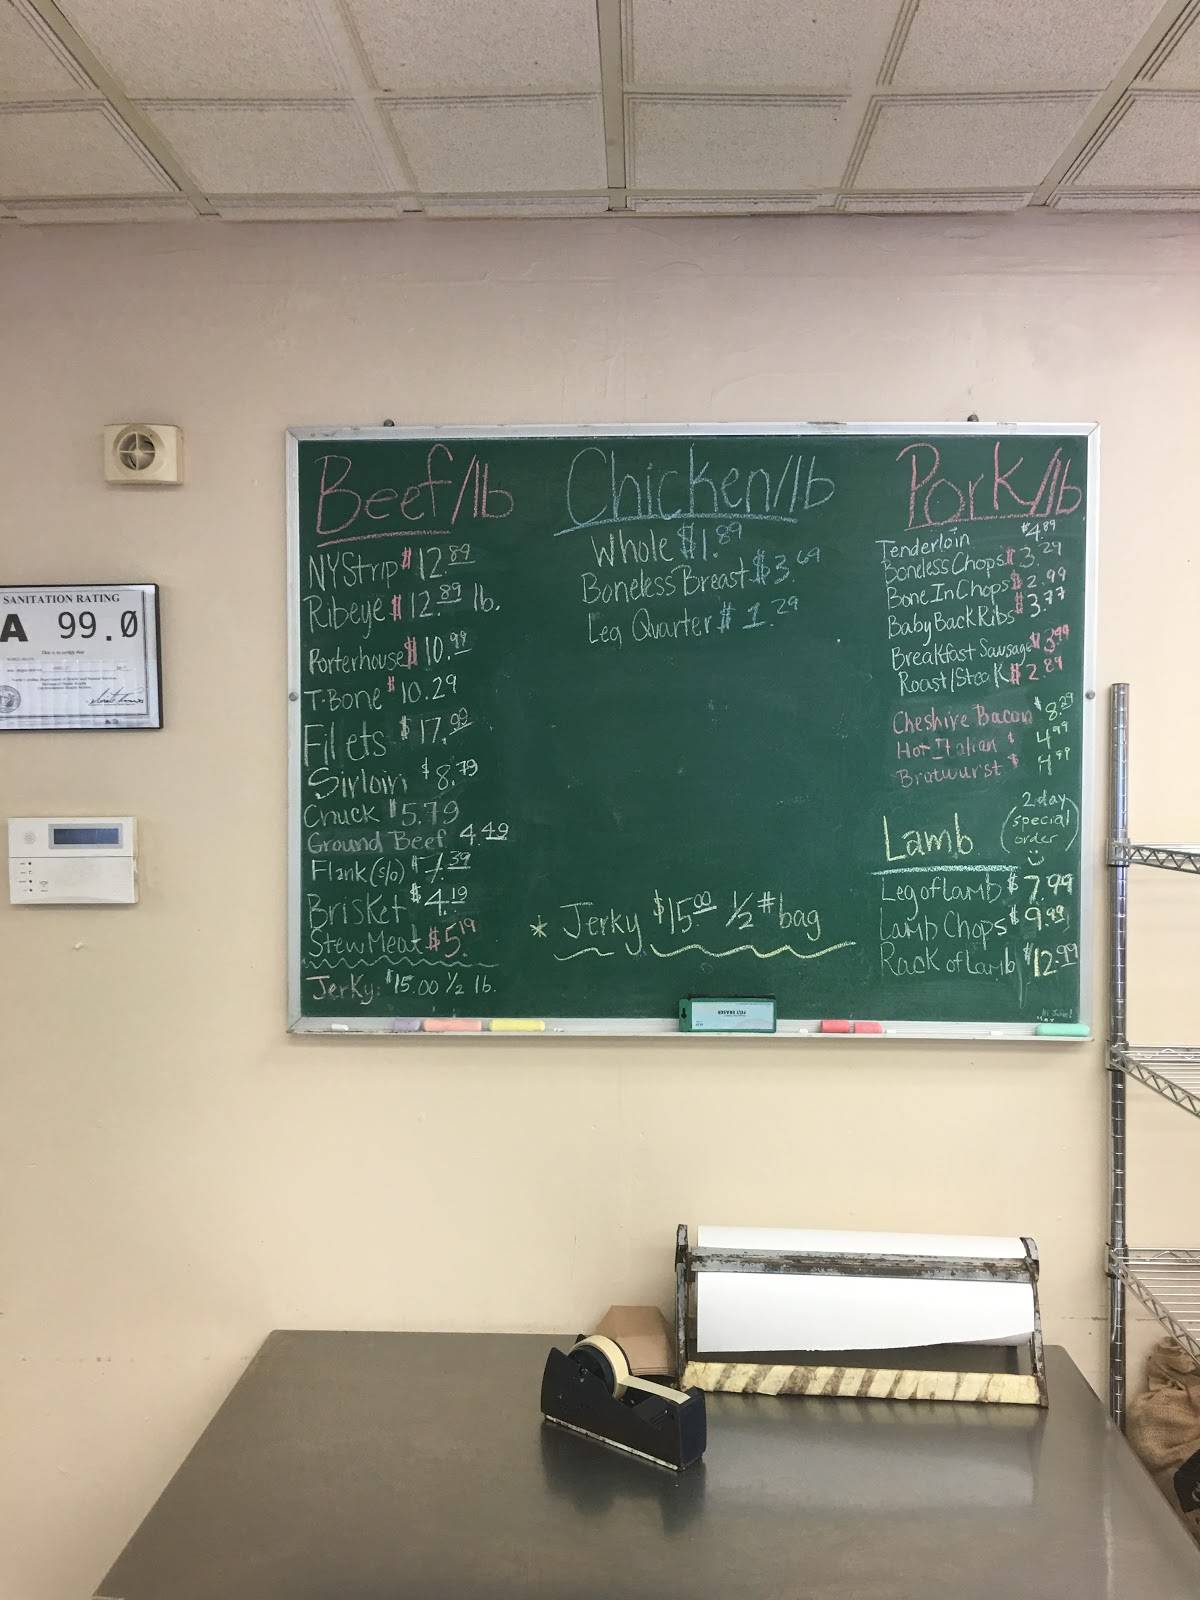 SANITATION RATING
A 99.0
This is to certify that
Beef/lb
NY Strip $12.89
Ribeye $12.89 lb.
Porterhouse $10.99
T-Bone $10.29
Filets $17.99
Sirloin $8.79
Chuck $5.79
Ground Beef 4.49
Flank (s/o) $7.39
Brisket $4.19
Stew Meat $5.19
Jerky: $15.00 1/2 lb.
Chicken/lb
Whole $1.89
Boneless Breast $3.69
Leg Quarter $1.29
* Jerky $15.00 1/2 # bag
Pork/lb
Tenderloin $4.89
Boneless Chops $3.29
Bone In Chops $2.99
Baby Back Ribs $3.77
Breakfast Sausage $3.99
Roast/Steak $2.89
Cheshire Bacon $8.29
Hot Italian $4.99
Bratwurst $4.99
Lamb (2 day
special
order)
Leg of Lamb $7.99
Lamb Chops $9.99
Rack of Lamb $12.99
FELT ERASER